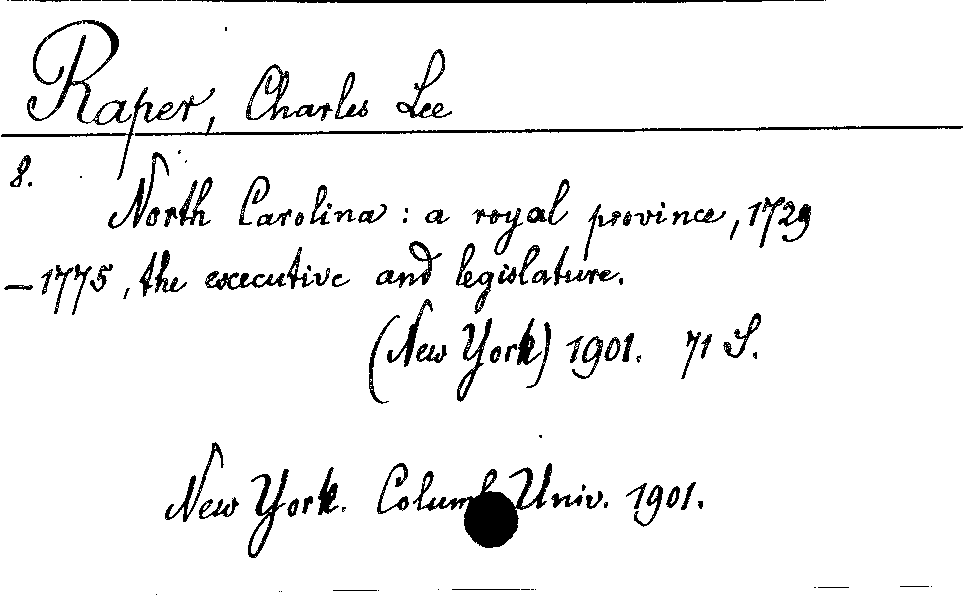 Raper, Charles Lee
8.
North Carolina : a royal province, 1729
– 1775, the executive and legislature.
(New York) 1901. 71 S.
New York. Columb Univ. 1901.